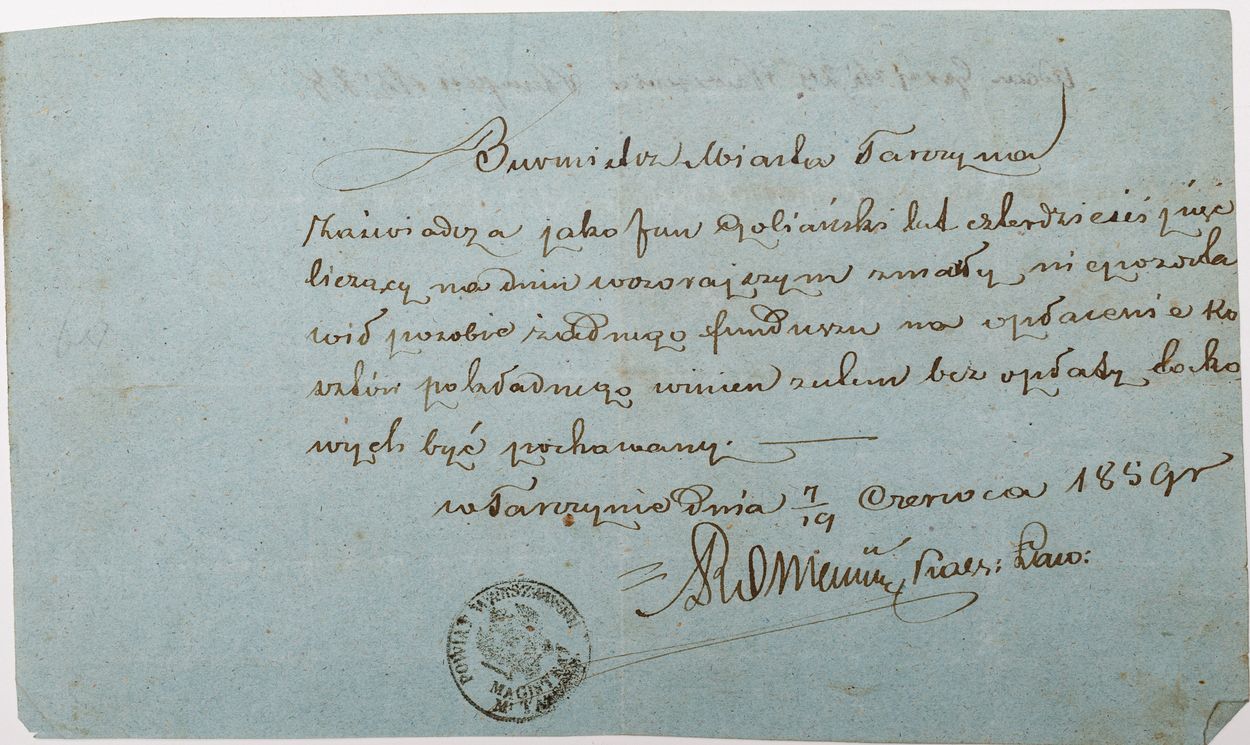 Burmistrz Miasta Tarczyna
Zaświadcza jako Jan Goliański lat czterdzieści pięć
liczący na dniu wczorajszym zmały, niepozosta
wił po sobie żadnego funduszu na opłacenie ko
sztów pokładnego winien zatem bez opłaty tacko
wych być pochowany. —
w Tarczynie dnia 7/19 Czerwca 1859 r
POWIAT WARSZAWSKI
MAGISTRAT
M. TAR